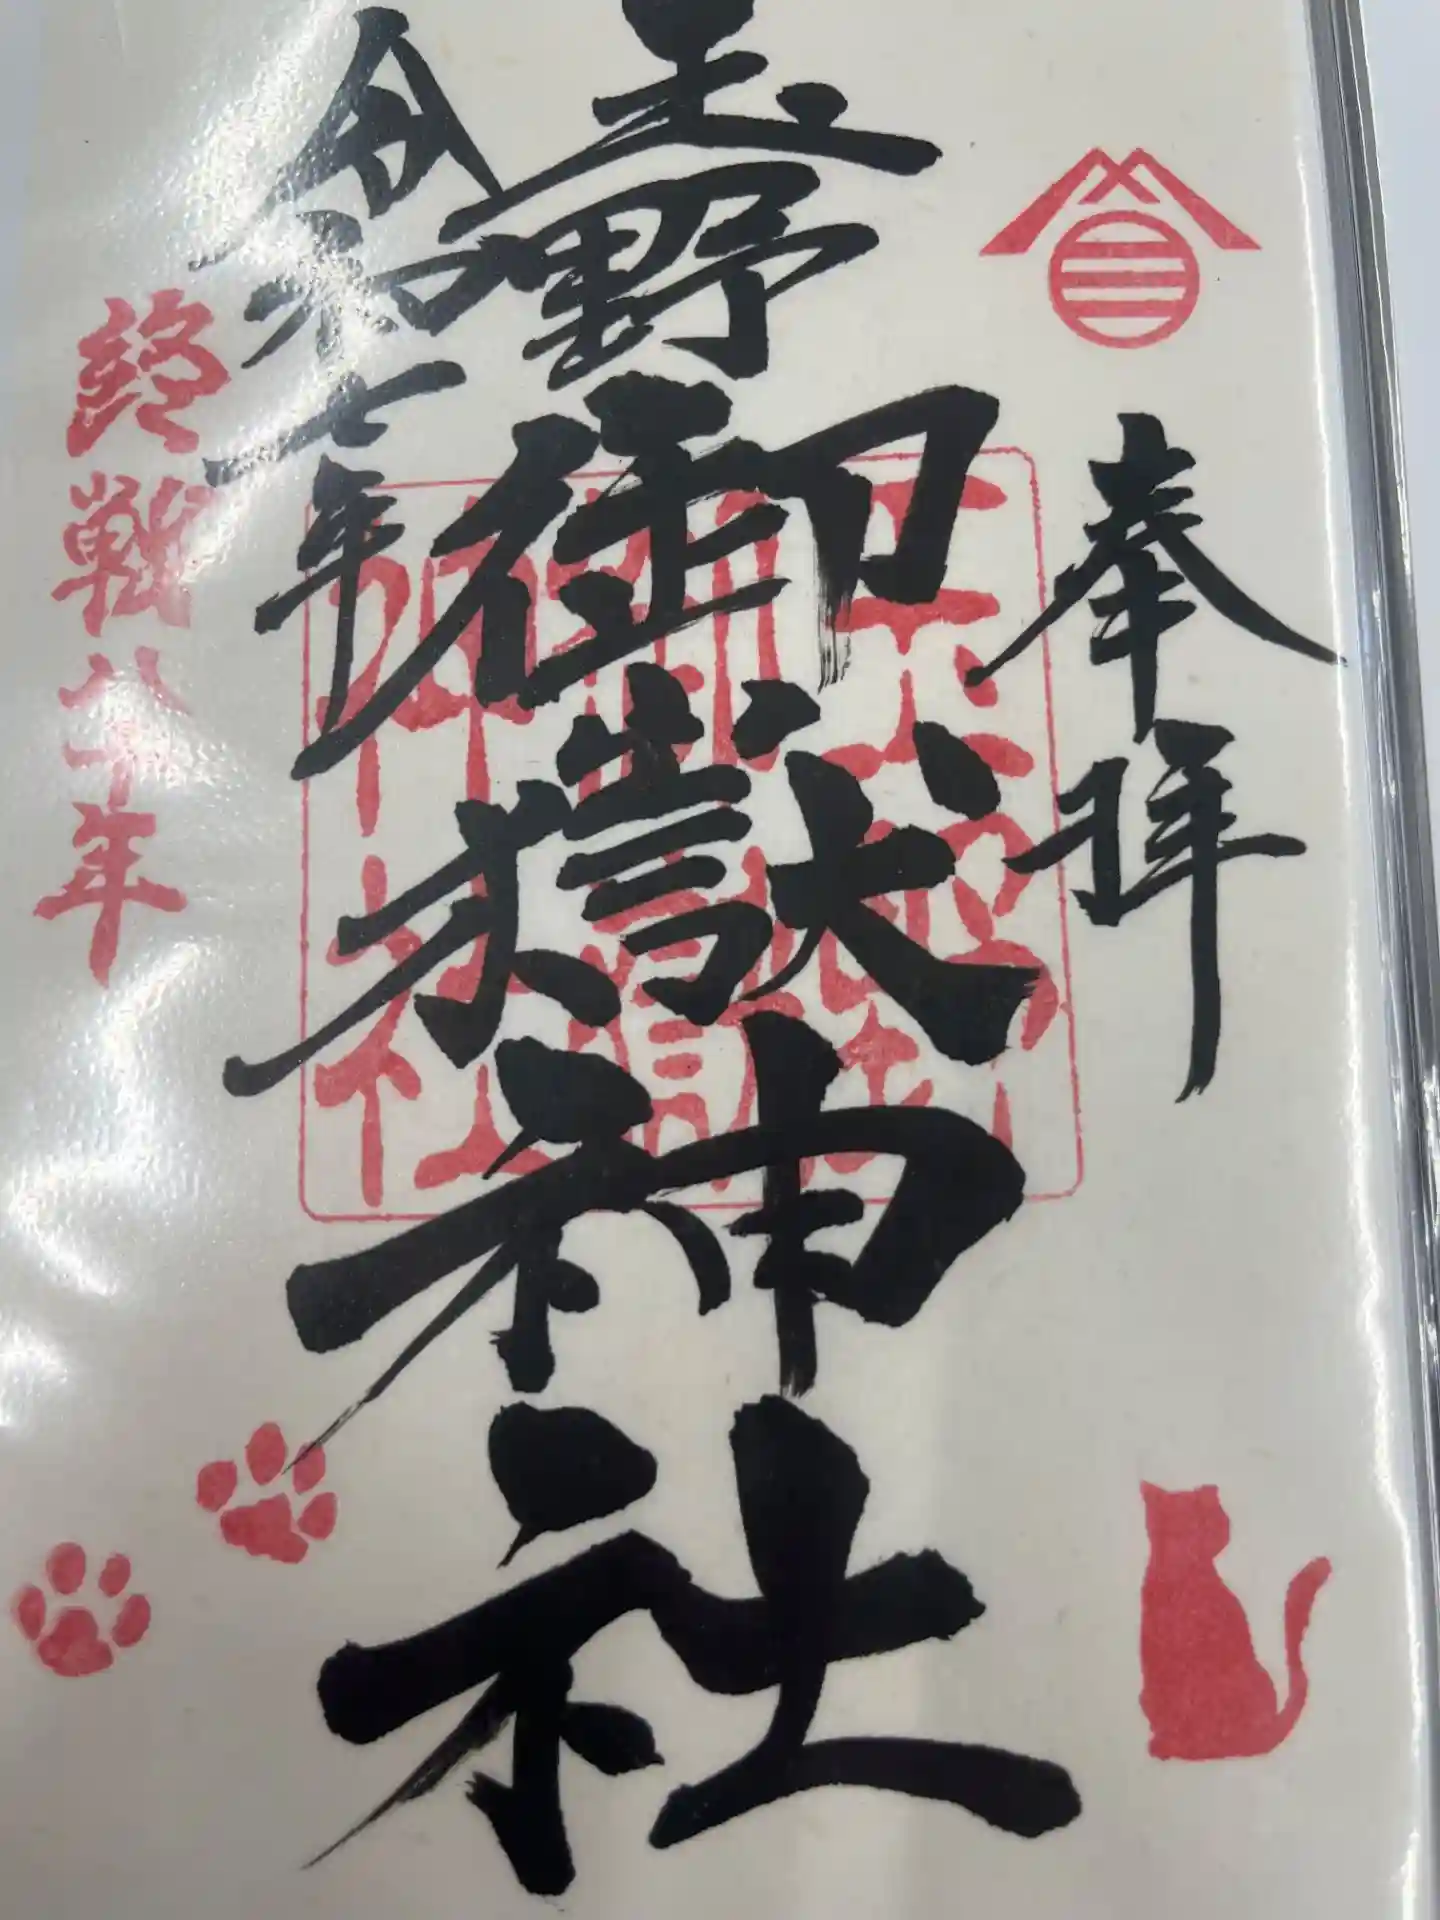 奉拝
玉野御嶽神社
令和七年
終戦八十年